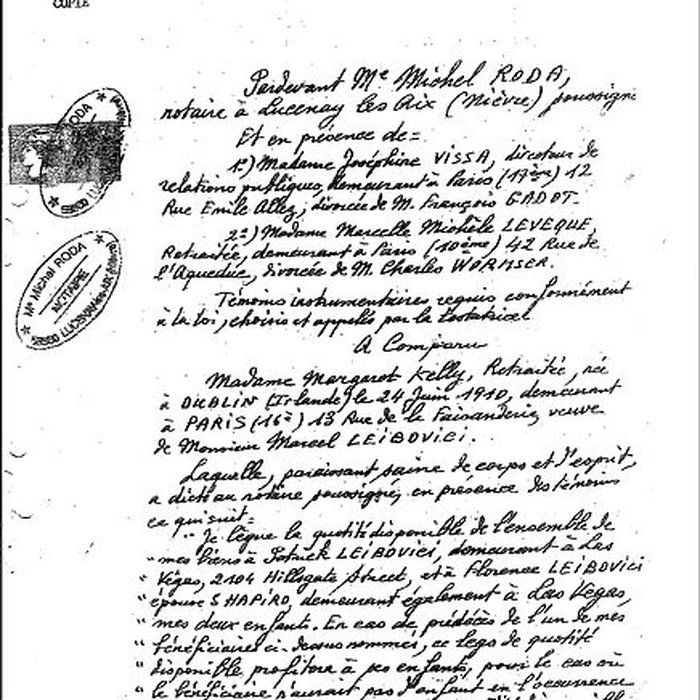 COPIE
Pardevant Me Michel RODA,
notaire à Lucenay les Aix (Nièvre) soussigné
Et en présence de =
1°) Madame Joséphine VISSA, directeur de
relations publiques, demeurant à Paris (17ème) 12
Rue Emile Allez, divorcée de M. François GADOT.
2°) Madame Marcelle Michèle LEVEQUE,
Retraitée, demeurant à Paris (10ème) 42 Rue de
l'Aqueduc, divorcée de M. Charles WORMSER.
Témoins instrumentaires requis conformément
à la loi, choisis et appelés par la testatrice.
A Comparu
Madame Margaret Kelly, Retraitée, née
à DUBLIN (Irlande) le 24 Juin 1910, demeurant
à PARIS (16è) 13 Rue de la Faisanderie, veuve
de Monsieur Marcel LEIBOVICI.
Laquelle, paraissant saine de corps et d'esprit,
a dicté au notaire soussigné, en présence des témoins
ce qui suit =
" Je lègue la quotité disponible de l'ensemble de
" mes biens à Patrick LEIBOVICI, demeurant à Las
" Végas, 2104 Hillsgate Street, et à Florence LEIBOVICI
" épouse SHAPIRO, demeurant également à Las Vegas,
" mes deux enfants. En cas de prédécès de l'un de mes
" bénéficiaires ci-dessus nommés, ce legs de quotité
" disponible profitera à ses enfants, pour le cas où
" le bénéficiaire n'aurait pas d'enfant en l'occurrence
RODA
Me Michel RODA
NOTAIRE